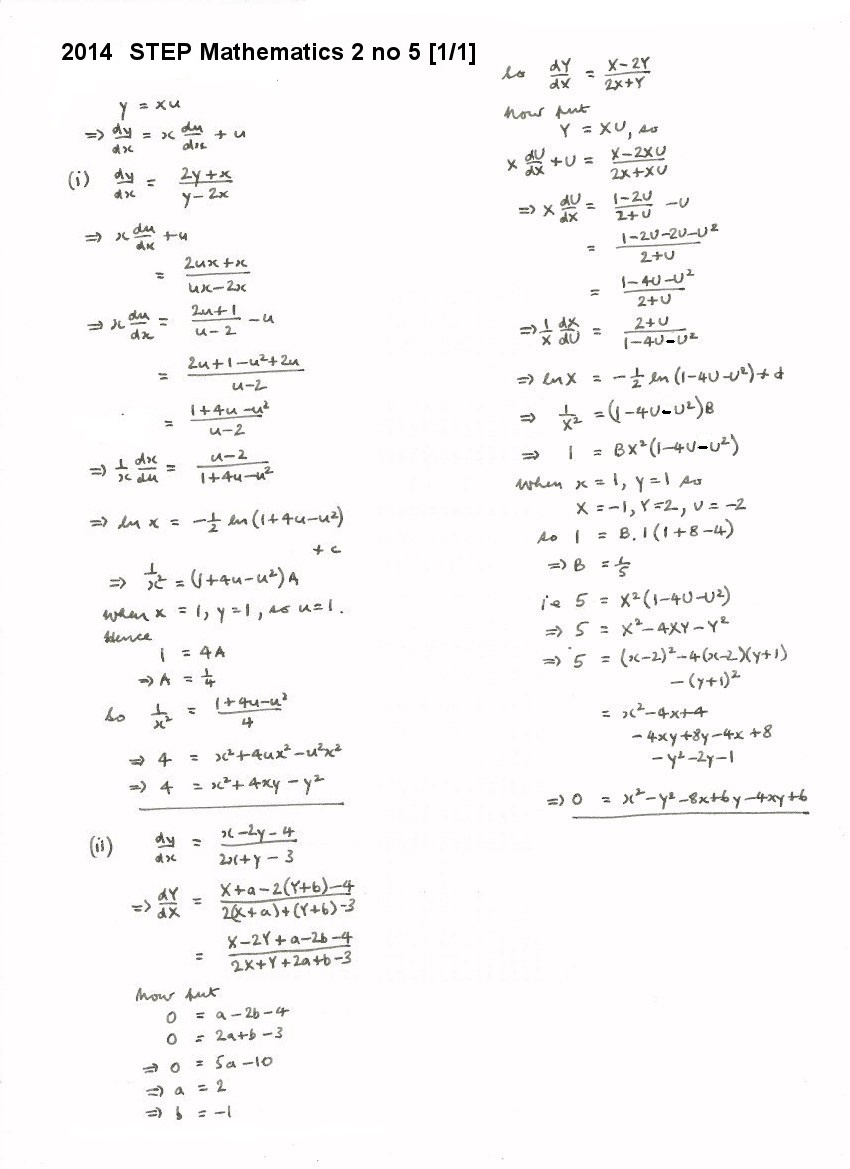 2014 STEP Mathematics 2 no 5 [1/1]
y = xu
⇒ dy/dx = x du/dx + u
(i) dy/dx = (2y+x)/(y-2x)
⇒ x du/dx + u
= (2ux+x)/(ux-2x)
⇒ x du/dx = (2u+1)/(u-2) - u
= (2u+1-u²+2u)/(u-2)
= (1+4u-u²)/(u-2)
⇒ 1/x dx/du = (u-2)/(1+4u-u²)
⇒ ln x = -½ ln(1+4u-u²)
+ c
⇒ 1/x² = (1+4u-u²)A
when x = 1, y=1, so u=1.
Hence
1 = 4A
⇒ A = ¼
So 1/x² = (1+4u-u²)/4
⇒ 4 = x²+4ux²-u²x²
⇒ 4 = x²+4xy-y²
(ii) dy/dx = (x-2y-4)/(2x+y-3)
⇒ dY/dX = (X+a-2(Y+b)-4)/(2(X+a)+(Y+b)-3)
= (X-2Y+a-2b-4)/(2X+Y+2a+b-3)
Now put
0 = a-2b-4
0 = 2a+b-3
⇒ 0 = 5a-10
⇒ a = 2
⇒ b = -1
So dY/dX = (X-2Y)/(2X+Y)
Now put
Y = XU, so
X dU/dX + U = (X-2XU)/(2X+XU)
⇒ X dU/dX = (1-2U)/(2+U) - U
= (1-2U-2U-U²)/(2+U)
= (1-4U-U²)/(2+U)
⇒ 1/X dX/dU = (2+U)/(1-4U-U²)
⇒ ln X = -½ ln(1-4U-U²)+d
⇒ 1/X² = (1-4U-U²)B
⇒ 1 = BX²(1-4U-U²)
When x=1, y=1 so
X=-1, Y=2, U=-2
so 1 = B.1(1+8-4)
⇒ B = 1/5
ie 5 = X²(1-4U-U²)
⇒ 5 = X²-4XY-Y²
⇒ 5 = (x-2)²-4(x-2)(y+1)
-(y+1)²
= x²-4x+4
-4xy+8y-4x+8
-y²-2y-1
⇒ 0 = x²-y²-8x+6y-4xy+6